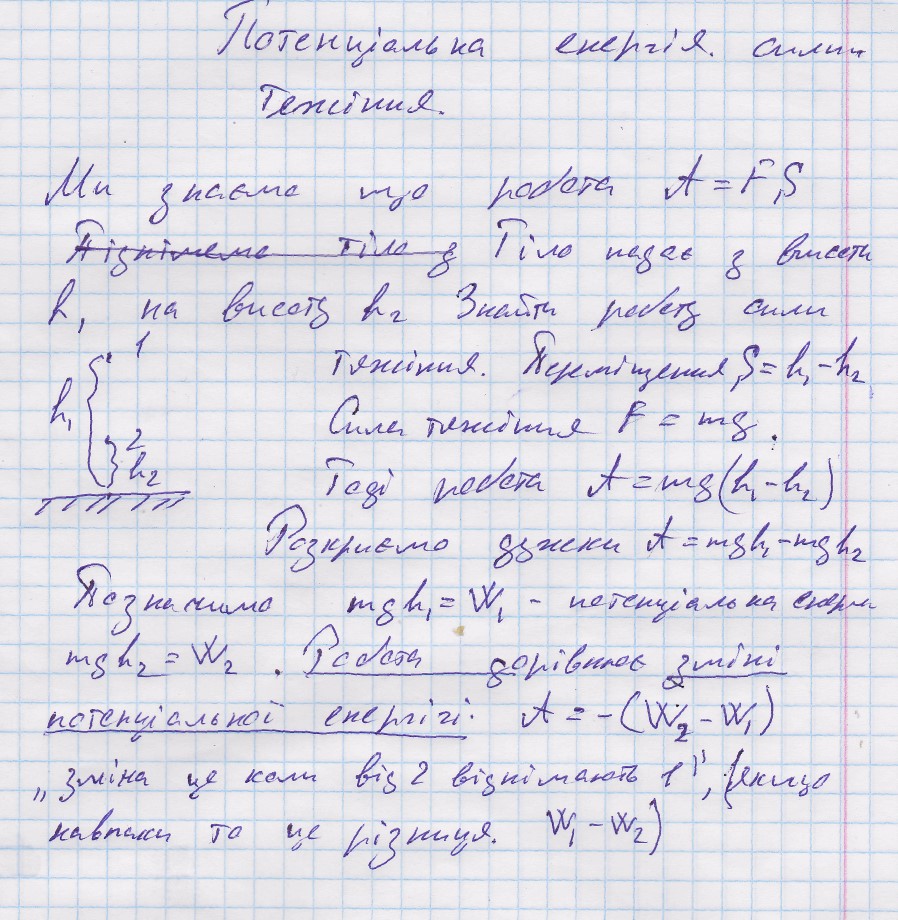 Потенціальна енергія. сили
Тяжіння.
Ми знаємо що робота A = F S
Піднімемо тіло з Тіло падає з висоти
h₁ на висоту h₂ Знайти роботу сили
1
тяжіння. Переміщення S = h₁ - h₂
h₁
2
Сила тяжіння F = mg.
h₂
Тоді робота A = mg(h₁ - h₂)
Розкриємо дужки A = mgh₁ - mgh₂
Позначимо mgh₁ = W₁ - потенціальна енергія
mgh₂ = W₂ . Робота дорівнює зміні
потенціальної енергігі. A = -(W₂ - W₁)
„зміна це коли від 2 віднімають 1", (якщо
навпаки то це різниця. W₁ - W₂)